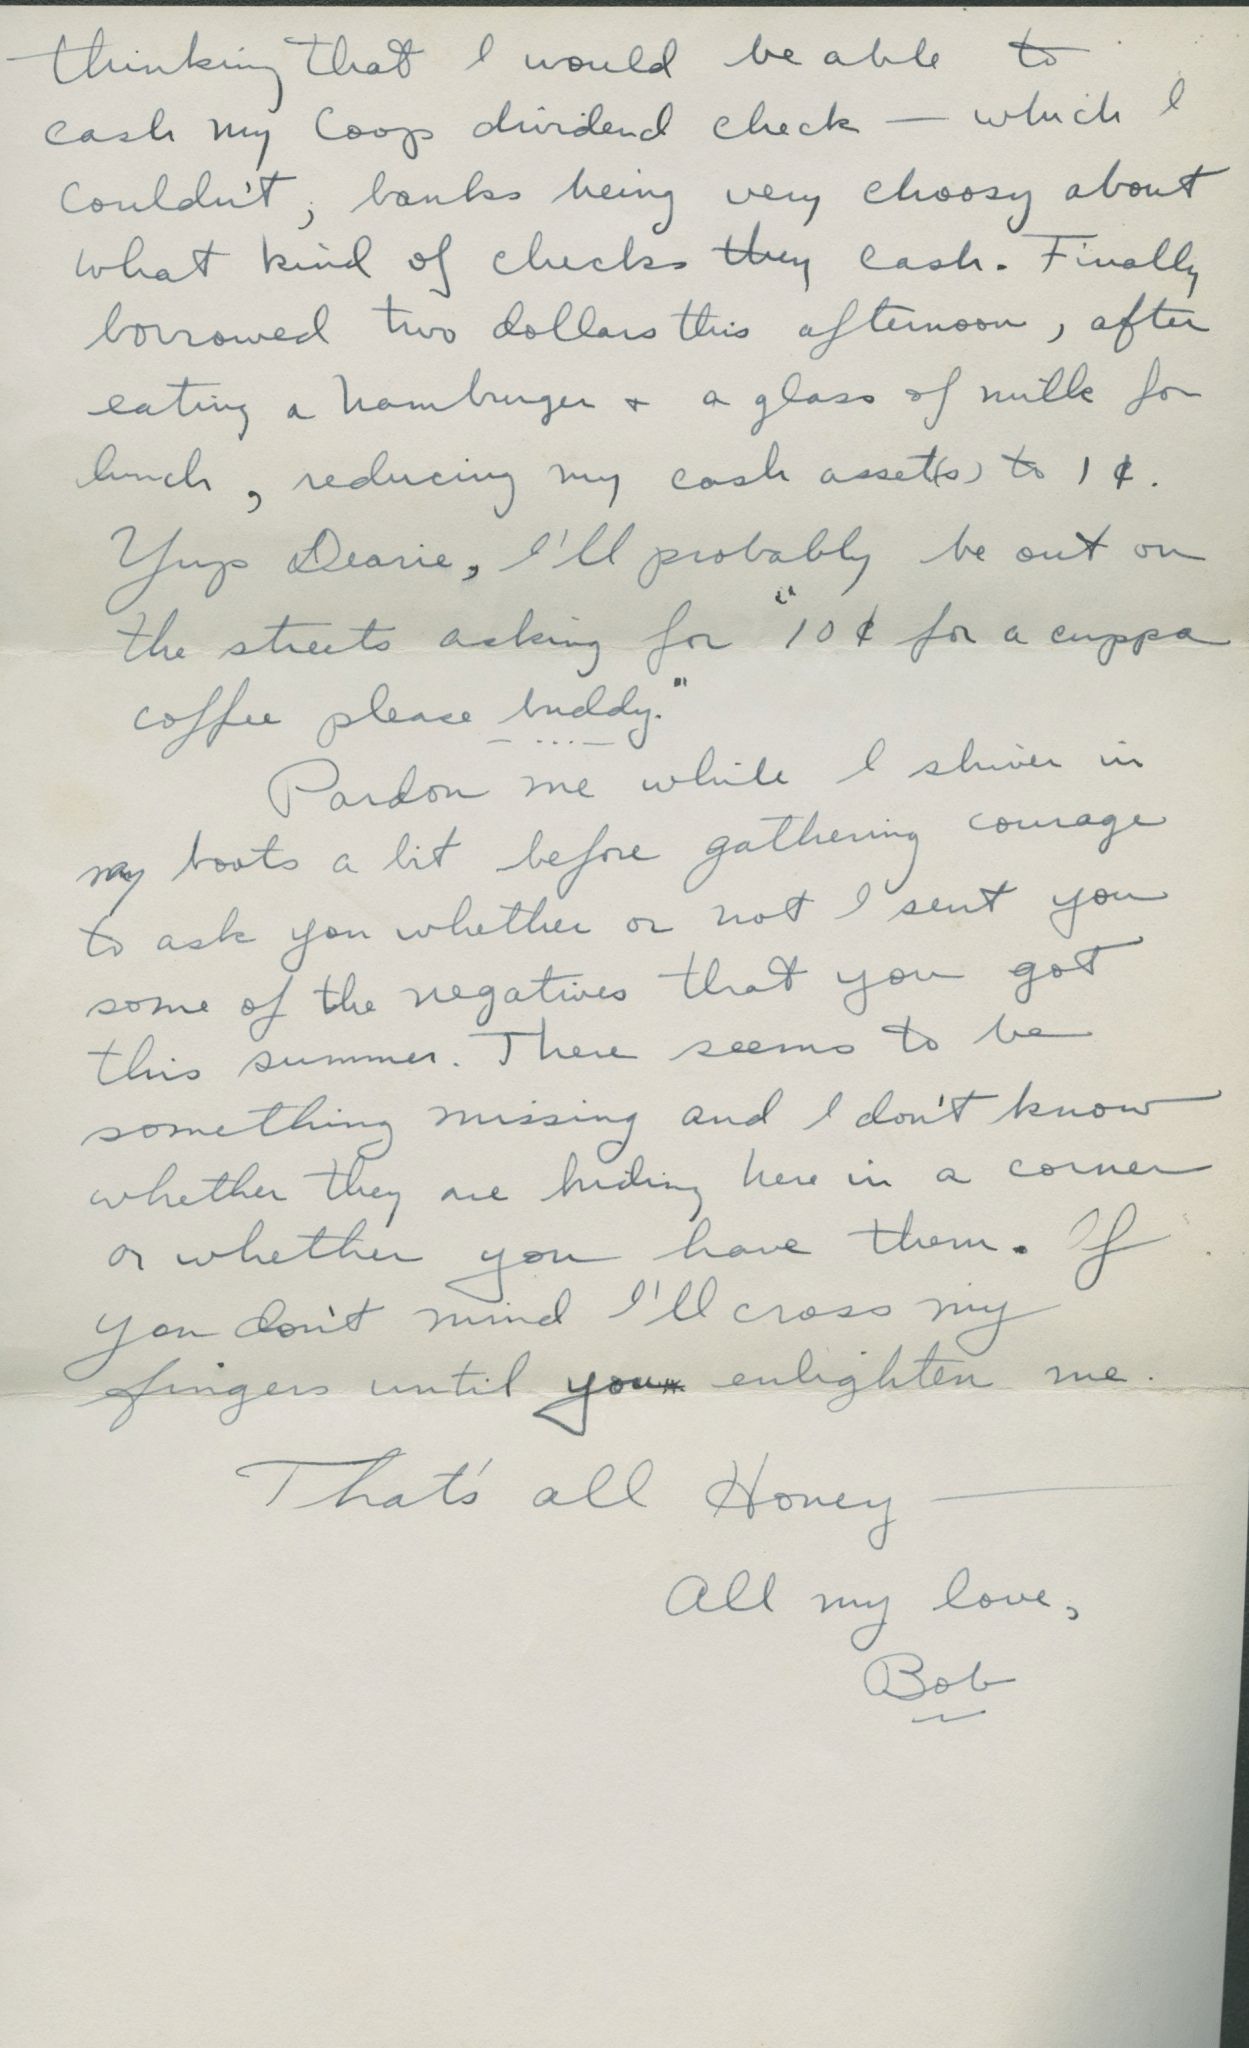 thinking that I would be able to
cash my Coop dividend check — which I
couldn't, banks being very choosy about
what kind of checks they cash. Finally
borrowed two dollars this afternoon, after
eating a hamburger + a glass of milk for
lunch, reducing my cash asset(s) to 1¢.
Yup Dearie, I'll probably be out on
the streets asking for "10¢ for a cuppa
coffee please buddy."
Pardon me while I shiver in
my boots a bit before gathering courage
to ask you whether or not I sent you
some of the negatives that you got
this summer. There seems to be
something missing and I don't know
whether they are hiding here in a corner
or whether you have them. If
you don't mind I'll cross my
fingers until you enlighten me.
That's all Honey —
All my love,
Bob